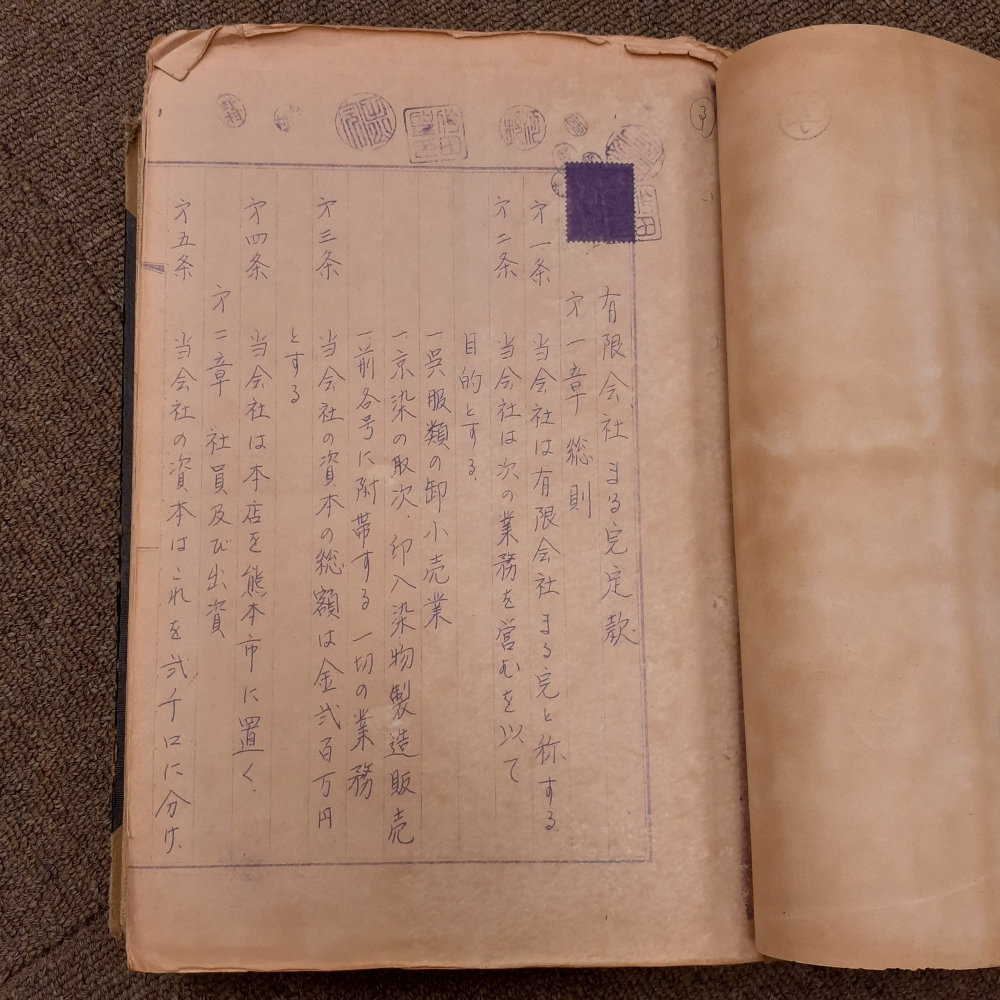 有限会社まる完定款
才一章 総則
才一条 当会社は有限会社まる完と称する
才二条 当会社は次の業務を営むを以て
目的とする、
一呉服類の卸小売業
一京染の取次、印入染物製造販売
一前各号に附帯する一切の業務
才三条 当会社の資本の総額は金弐百万円
とする
才四条 当会社は本店を熊本市に置く、
才二章 社員及び出資
才五条 当会社の資本はこれを弐千口に分け、